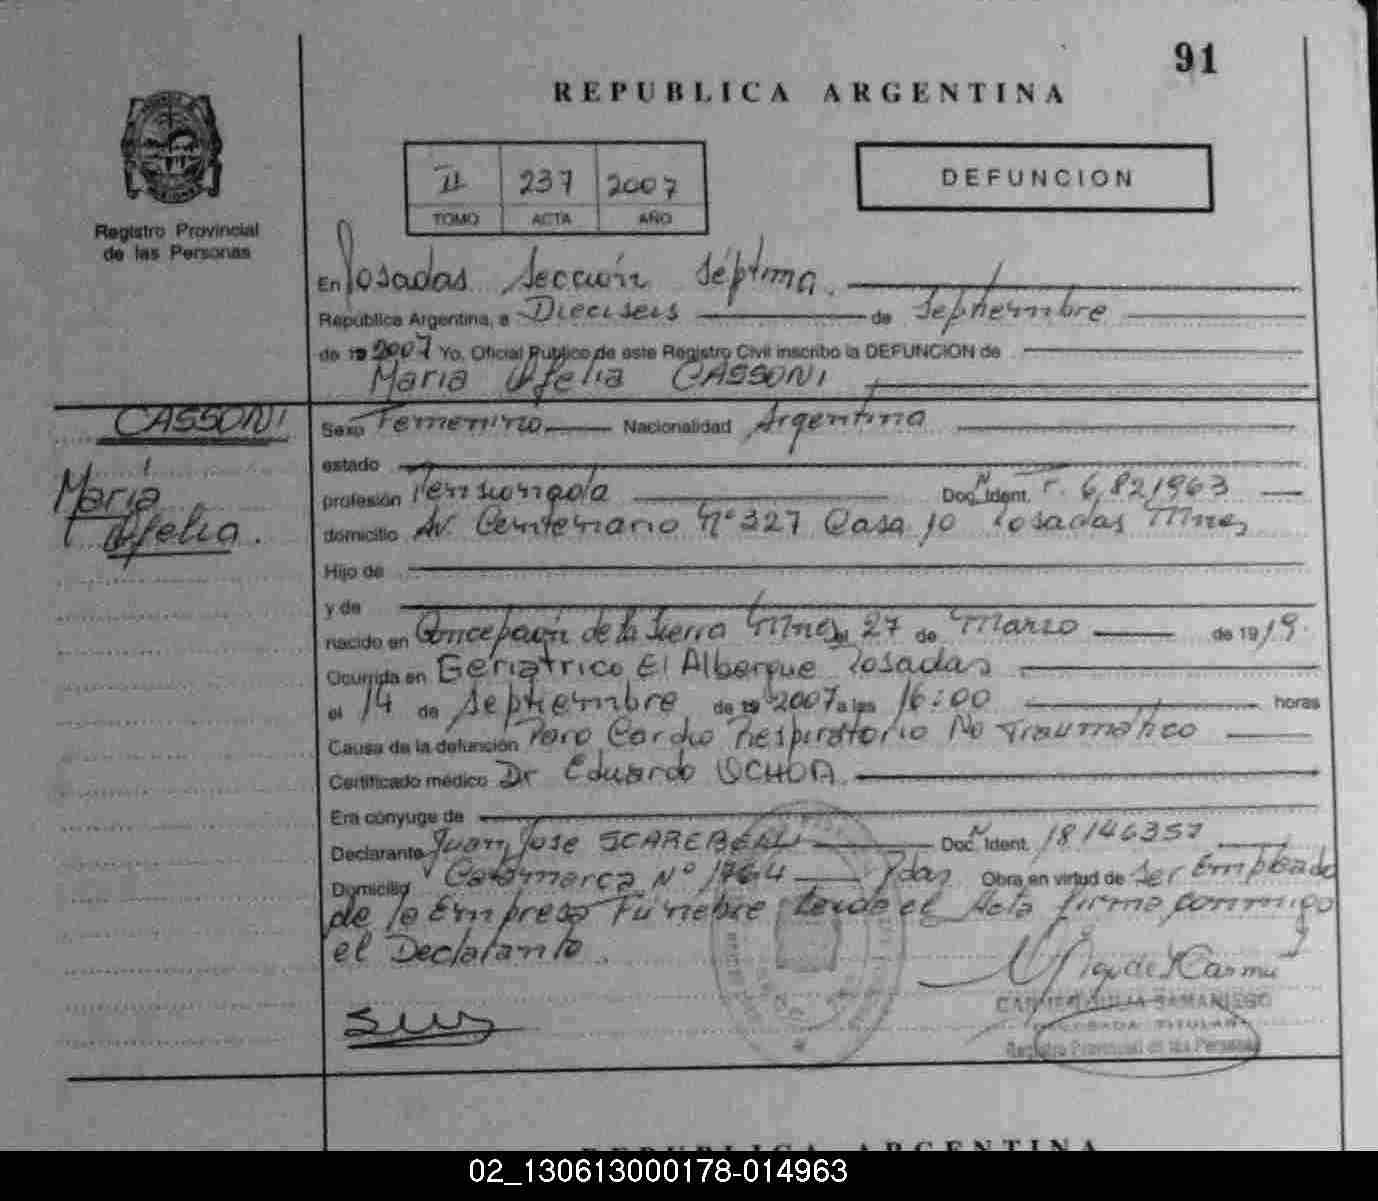 91
REPUBLICA ARGENTINA
II 237 2007
TOMO ACTA AÑO
DEFUNCION
Registro Provincial
de las Personas
En Posadas Sección Séptima.
República Argentina, a Dieciseis de Septiembre
de 19 2007 Yo, Oficial Público de este Registro Civil inscribo la DEFUNCION de
Maria Ofelia CASSONI
CASSONI
Maria
Ofelia.
Sexo Femenino Nacionalidad Argentina
estado
profesión Pensionada Doc. Ident. F. 6,821963
domicilio Av. Centenario Nº 327 Casa 10 Posadas Mnes
Hijo de
y de
nacido en Concepción de la Sierra Mnes el 27 de Marzo de 1919.
Ocurrida en Geriatrico El Albergue Posadas
el 14 de Septiembre de 19 2007 a las 16:00 horas
Causa de la defunción Paro Cardio Respiratorio No Traumatico
Certificado médico Dr Eduardo OCHOA.
Era cónyuge de
Declarante Juan Jose Doc. Ident. 18146357
Domicilio Catamarca Nº 1764 Pdas Obra en virtud de Ser Empleado
de la Empresa Funebre; leida el Acta firma conmigo
el Declarante.
CARMEN JULIA SAMANIEGO
TITULAR
Registro Provincial de las Personas
REPUBLICA ARGENTINA
02_130613000178-014963